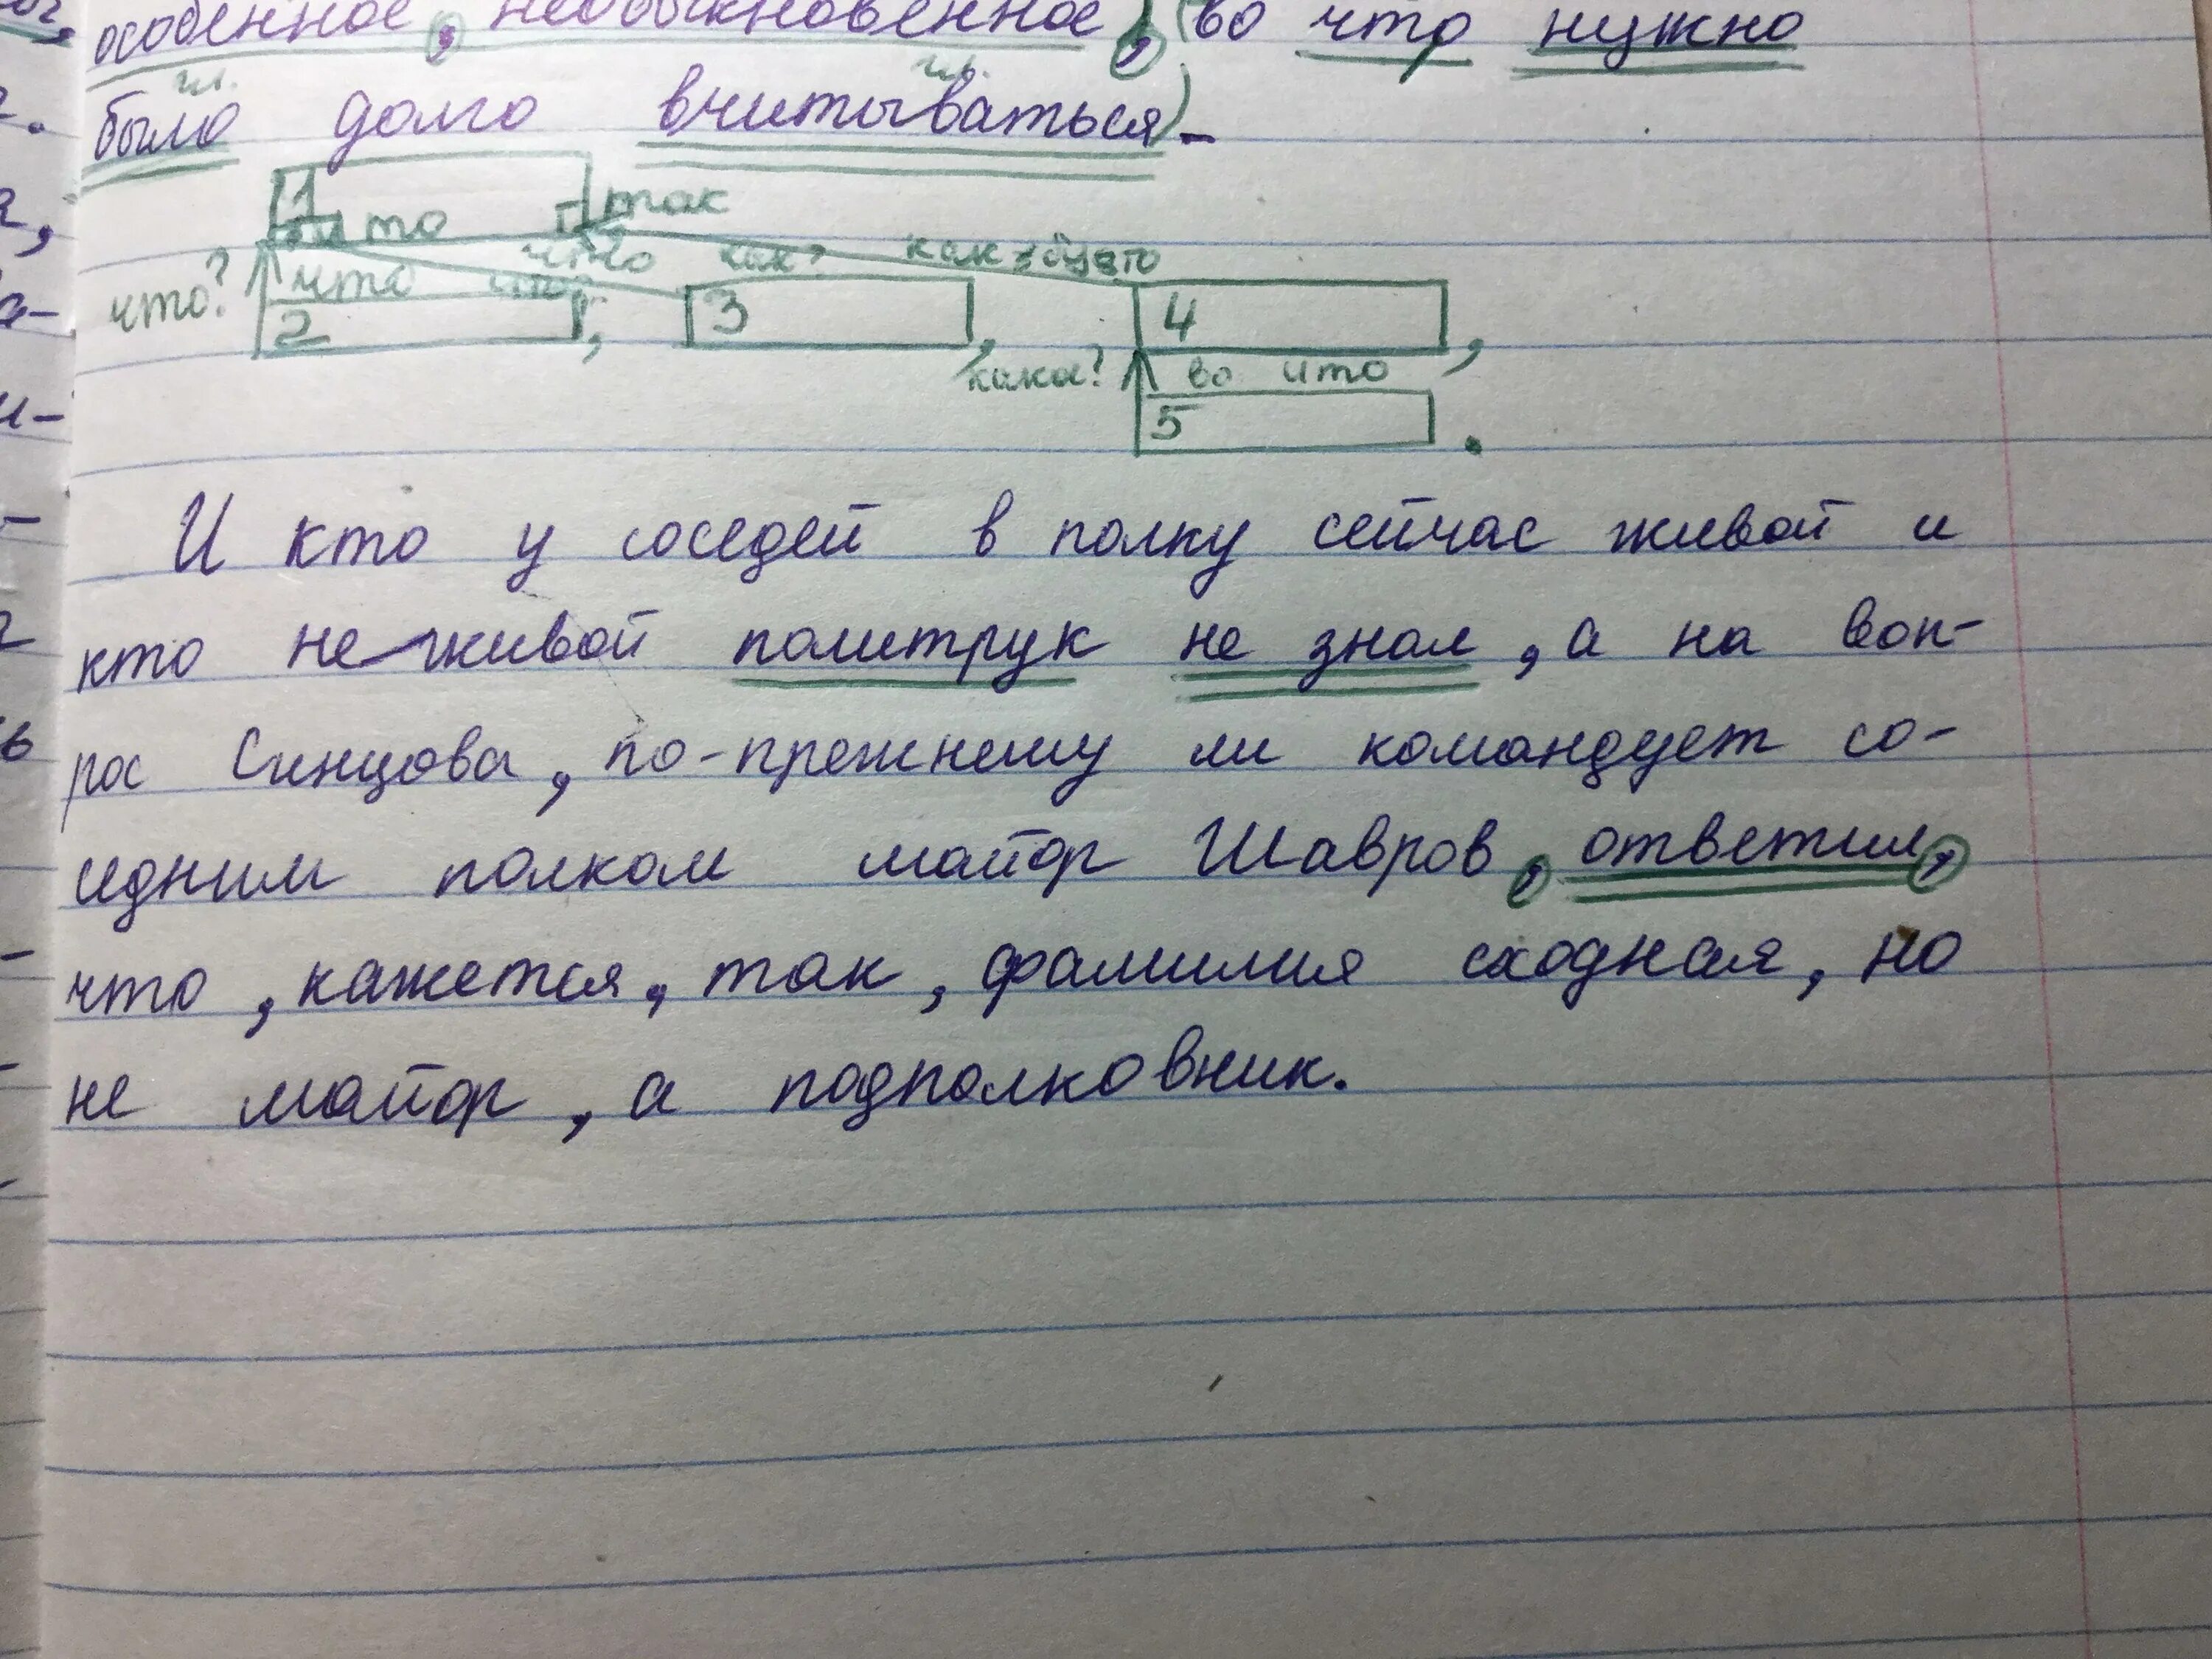 особенное, необыкновенное, (во что нужно
гл. гл.
было долго вчитываться).
1 что так
что? что что как? как будто
2 , 3 , 4 ,
какое? во что
5 .
И кто у соседей в полку сейчас живой и
кто неживой политрук не знал, а на воп-
рос Синцова, по-прежнему ли командует со-
седним полком майор Шавров, ответил,
что, кажется, так, фамилия сходная, но
не майор, а подполковник.